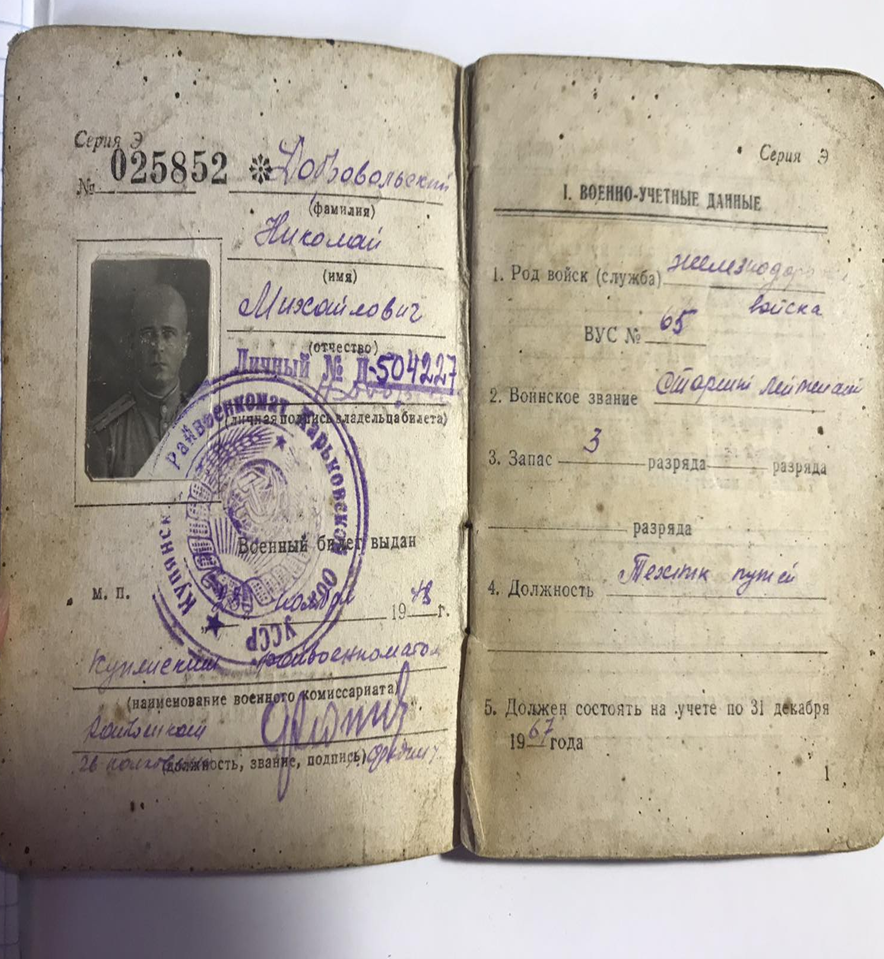 Серия Э
№ 025852 ✼ Добровольский
(фамилия)
Николай
(имя)
Михайлович
(отчество)
Личный № Д-504227
(личная подпись владельца билета)
Райвоенкомат Харьковской обл. УССР
Военный билет выдан
М. П.
ноября 1948 г.
Купянский райвоенкомат
(наименование военного комиссариата)
(должность, звание, подпись)
Серия Э
I. ВОЕННО-УЧЕТНЫЕ ДАННЫЕ
1. Род войск (служба) железнодор
войска
ВУС № 65
2. Воинское звание Старший лейтенант
3. Запас 3 разряда разряда
разряда
4. Должность Техник путей
5. Должен состоять на учете по 31 декабря
1967 года
1